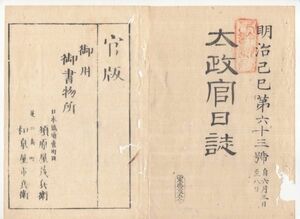 明治己巳第六十三號
自六月三日
至八日
太政官日誌
官版
御用
御書物所
須原屋茂兵衛
和泉屋市兵衛